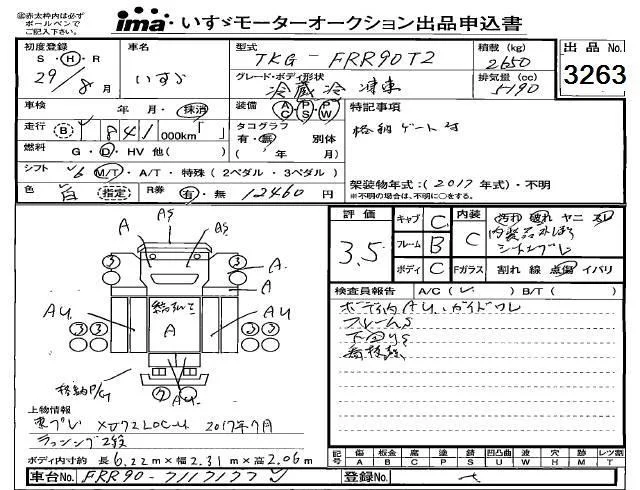 (注)赤太枠内は必ず
ボールペンで
ご記入下さい。
ima いすゞモーターオークション出品申込書
初度登録 S・H・R 29/8月
車名 いすゞ
型式 TKG-FRR90T2
積載 (kg) 2650
出品No. 3263
グレード・ボディ形状 冷蔵冷凍車
排気量 (cc) 5190
車検 年・月・抹消
装備 AC PS PW
特記事項
走行 (B) 841 000km「 」
タコグラフ 有・無 別体
年/月
格納ゲート付
燃料 G・D・HV 他( )
シフト 6 M/T・A/T・特殊(2ペダル・3ペダル)
架装物年式:(2017年式)・不明
※不明の場合は、不明に○をする。
色 白 指定
R券 有・無 12460円
評価 3.5
キャブ C
フレーム B
ボディ C
内装 C
汚れ 破れ ヤニ スレ
内装品外しあり
Fガラス 割れ 線 点傷 イバリ
検査員報告 A/C( レ ) B/T( )
ボディ内AU、ガイドワレ
フレームS
下回りS
AS
A
AS
3
3
A
A
AU
AU
A
3 3
3 3
格納P/G
ク
ク
AU
上物情報
東プレ 2017年7月
ラッシング2段
ボディ内寸約 長6.22m×幅2.31m×高2.06m
記号 傷 板金 腐 塗 錆 凹凸曲 波 穴 跡 レツ割
A B C P S U W H M T
車台No. FRR90-7117177
登録No.